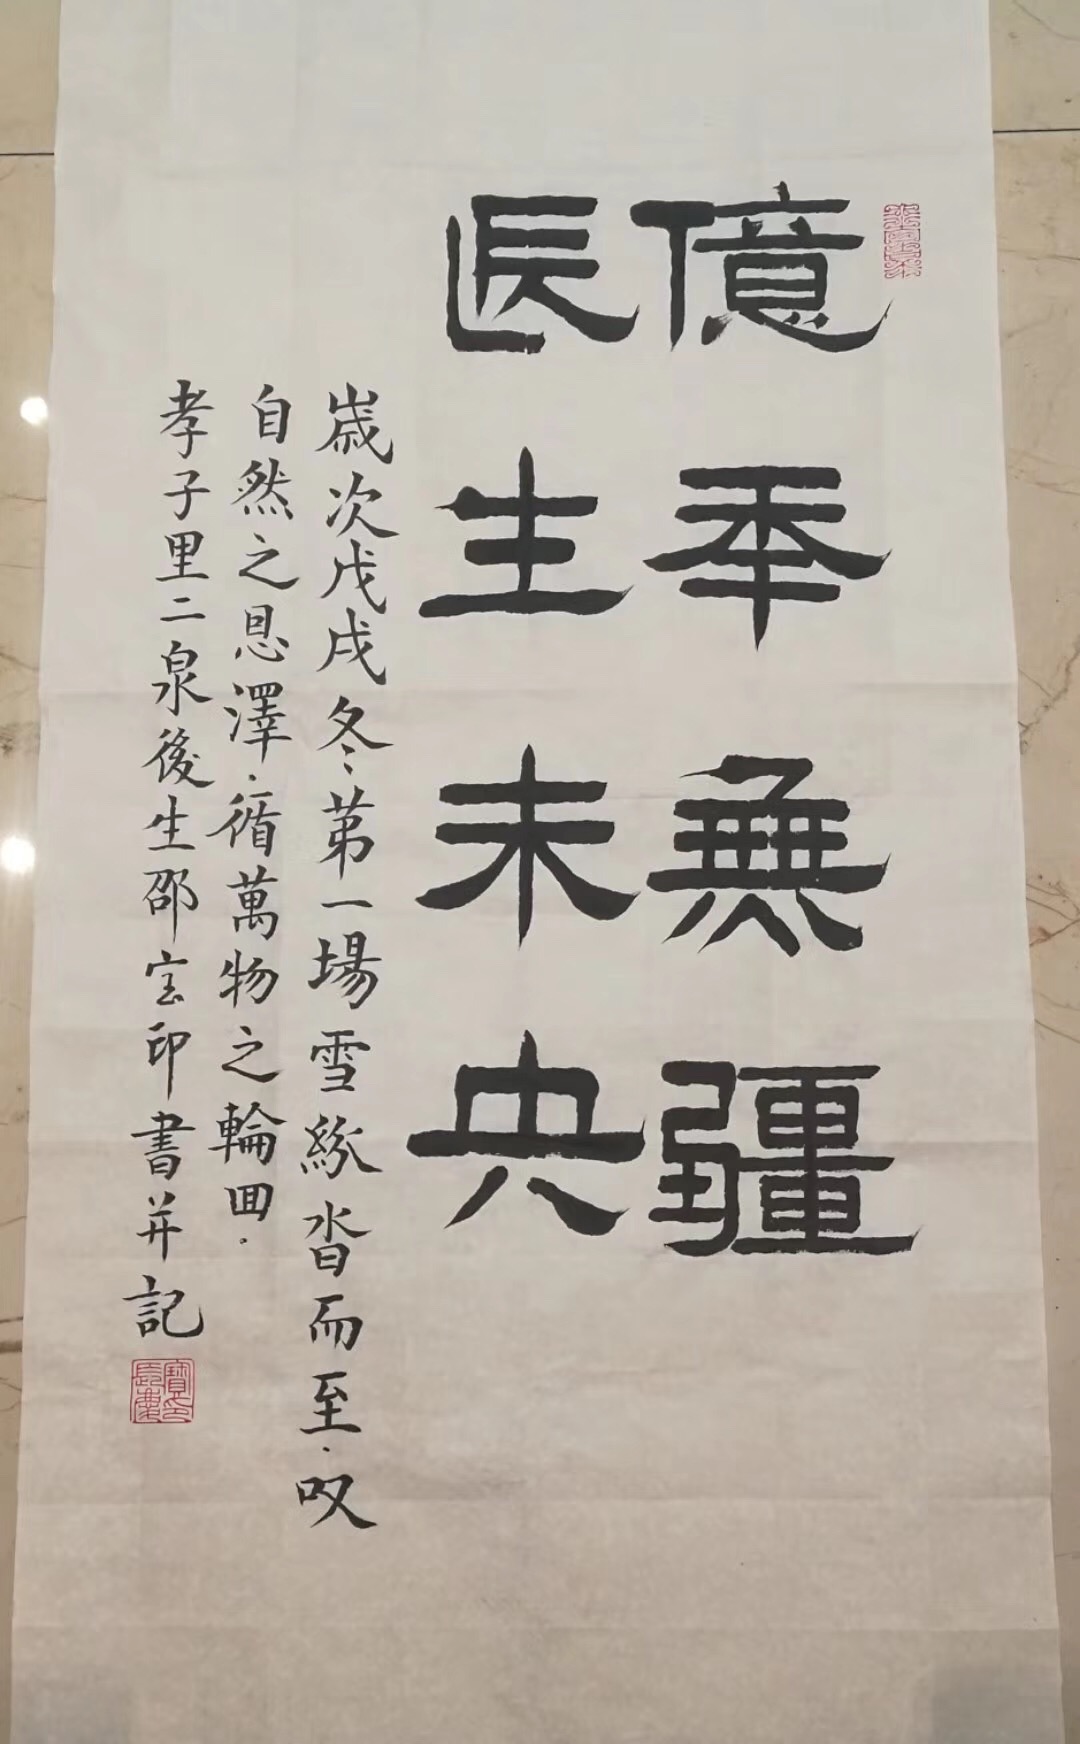 億年無疆
長生未央
歲次戊戌冬第一場雪紛沓而至.叹
自然之恩澤.循萬物之輪回.
孝子里二泉後生邵宝印書并記